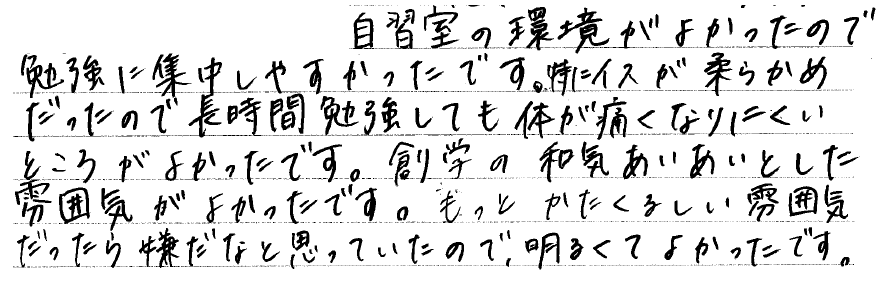 自習室の環境がよかったので
勉強に集中しやすかったです。特にイスが柔らかめ
だったので長時間勉強しても体が痛くなりにくい
ところがよかったです。創学の和気あいあいとした
雰囲気がよかったです。もっとかたくるしい雰囲気
だったら嫌だなと思っていたので、明るくてよかったです。